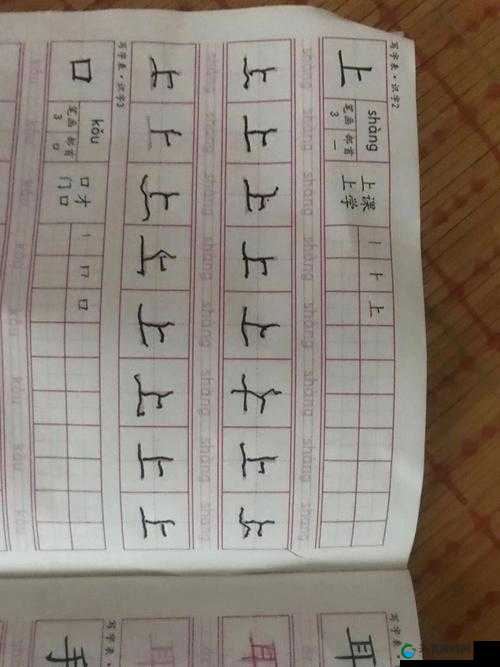 写字表·识字2
上 shàng 上课 丨 ⺊ 上
笔画 3 部首 一 上学
shàng shàng shàng shàng shàng shàng shàng shàng
上 上 上 上 上 上 上 上
shàng shàng shàng shàng shàng shàng shàng shàng
上 上 上 上 上 上 上 上
写字表·识字3
口 kǒu 口才 丨 冂 口
笔画 3 部首 口 门口
kǒu kǒu kǒu kǒu kǒu kǒu kǒu kǒu
写字表
耳
耳
写字表
手